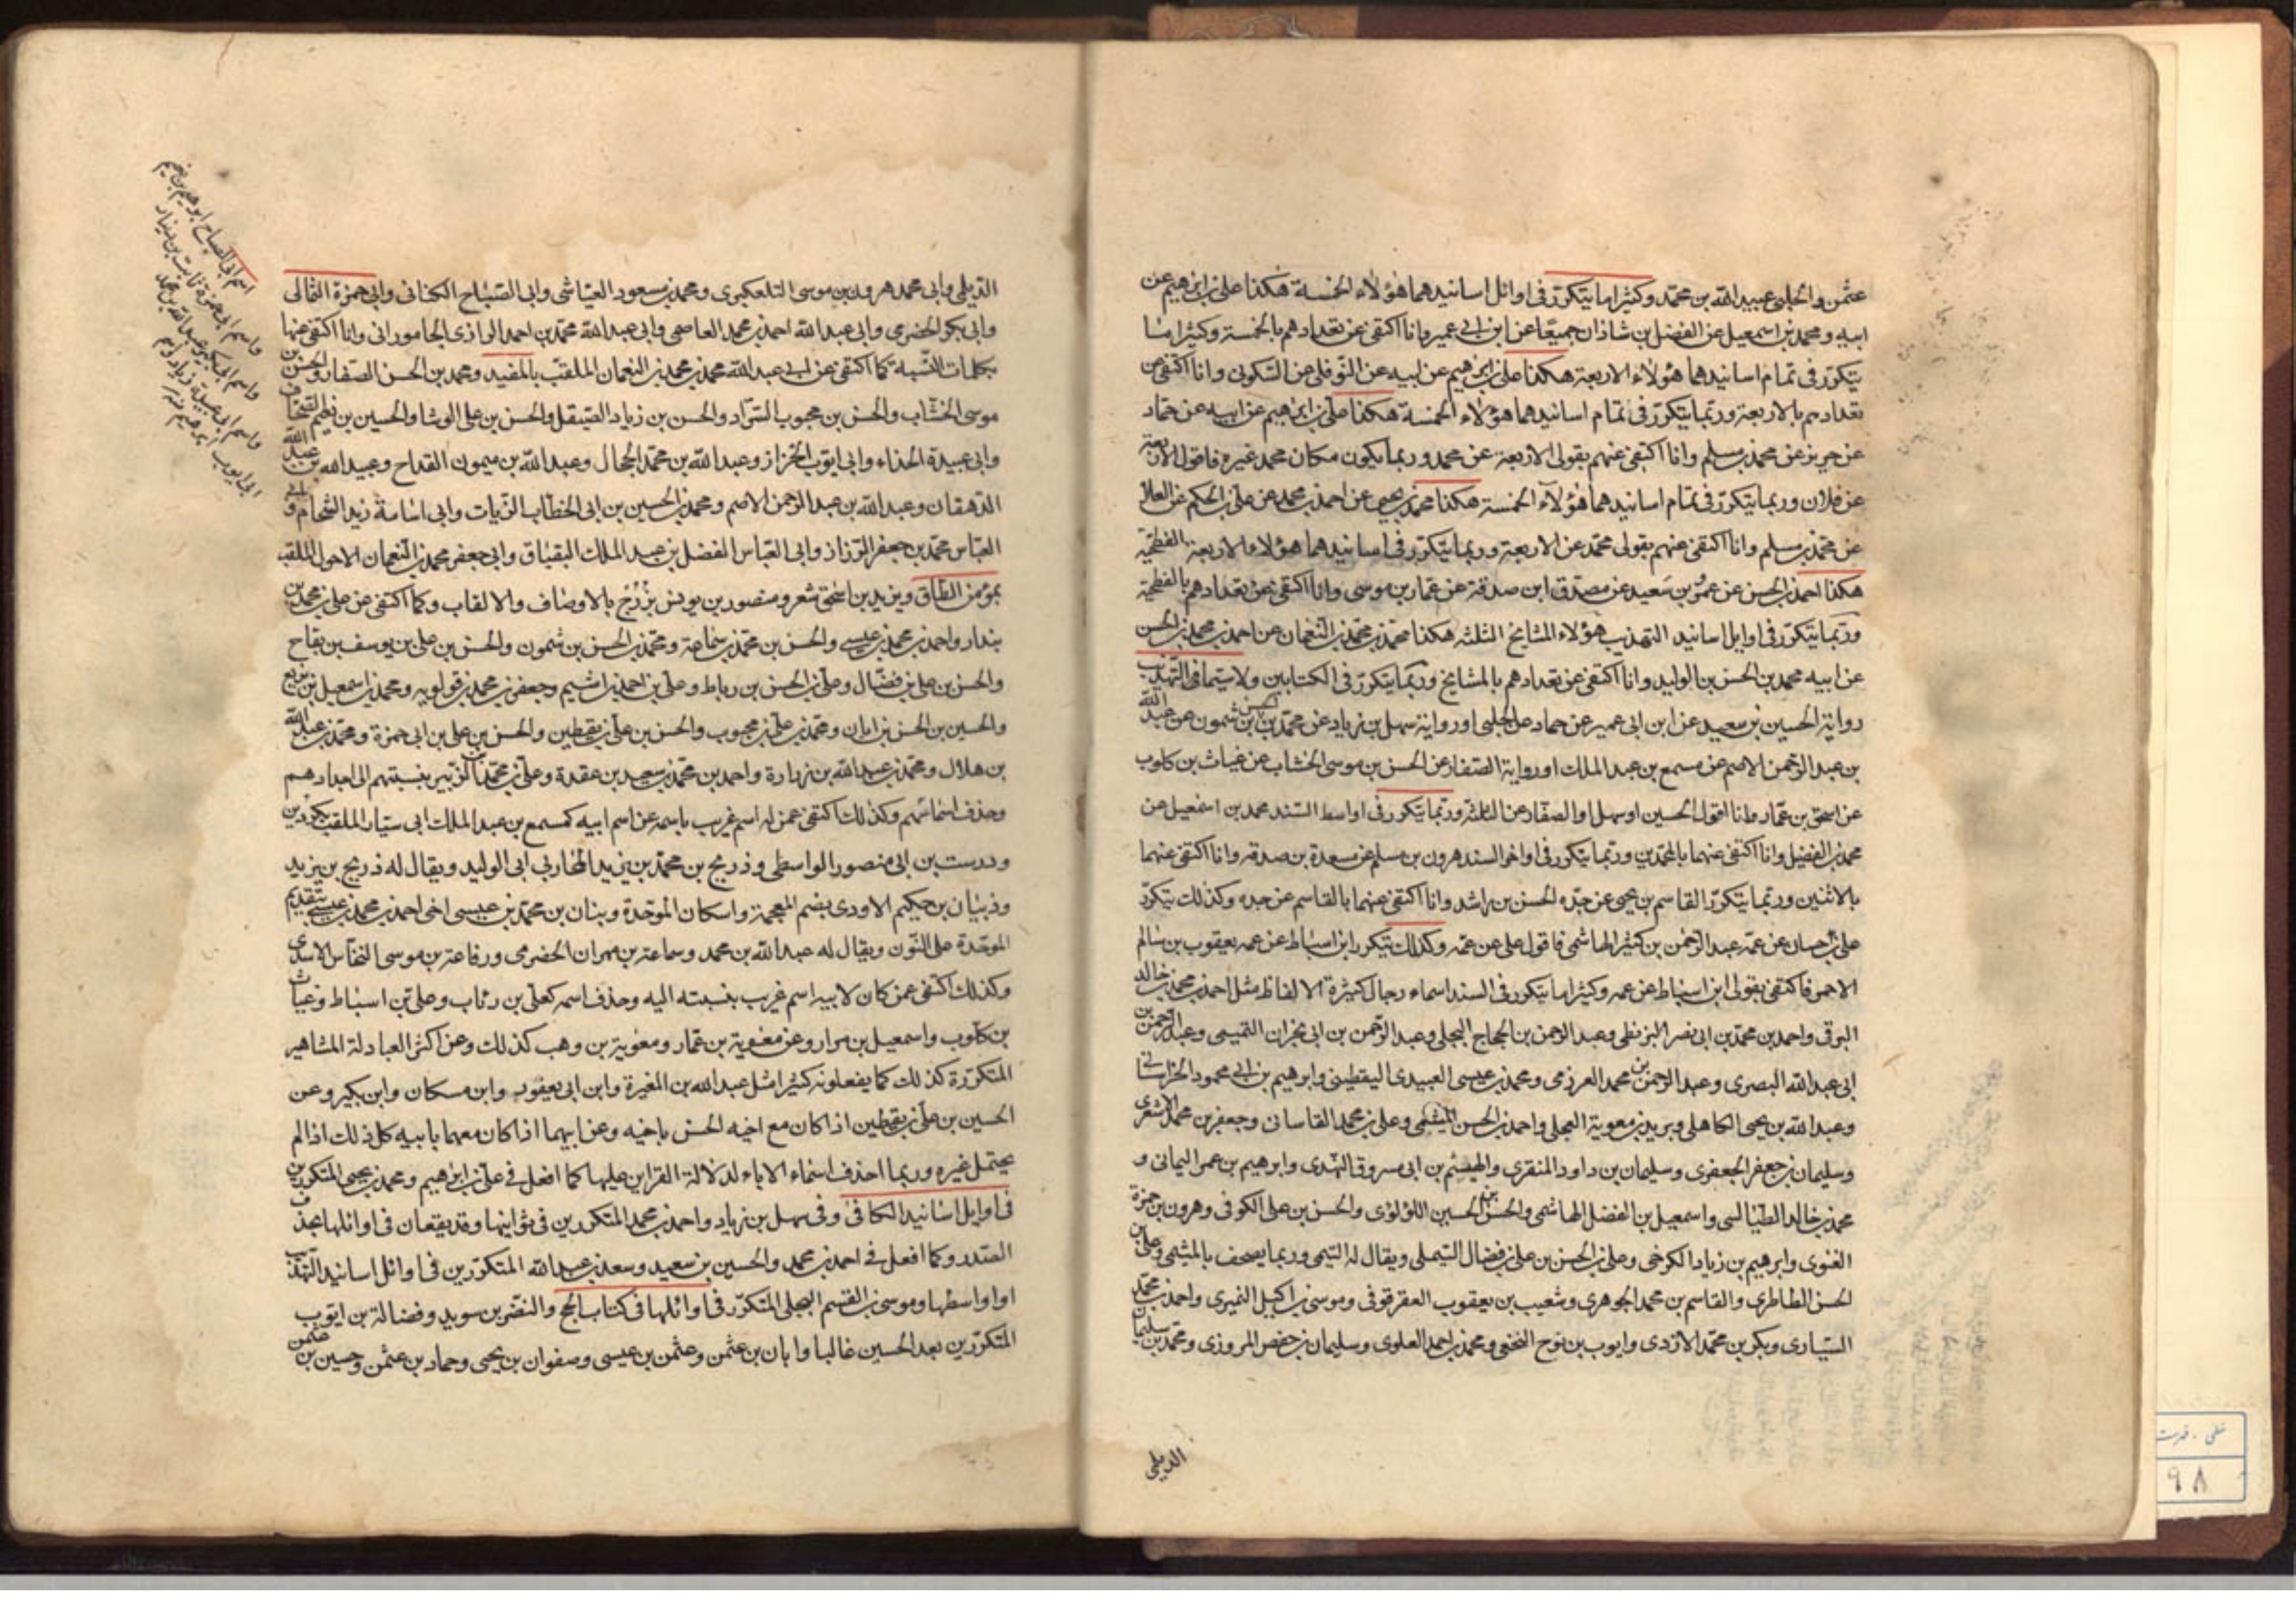 عثمن والحلبى عبيد الله بن محمد وكثيرا ما يتكرر فى اوائل اسانيدهما هؤلاء الخمسة هكذا على بن ابرهيم عن
ابيه ومحمد بن اسمعيل عن الفضل بن شاذان جميعا عن ابن ابى عمير وانا اكتفى عن تعدادهم بالخمسة وكثيرا ما
يتكرر فى تمام اسانيدهما هؤلاء الاربعة هكذا على بن ابرهيم عن ابيه عن النوفلى عن السكونى وانا اكتفى عن
تعدادهم بالاربعة وربما يتكرر فى تمام اسانيدهما هؤلاء الخمسة هكذا على بن ابرهيم عن ابيه عن حماد
عن حريز عن محمد بن مسلم وانا اكتفى عنهم بقولى الاربعة عن محمد وربما يكون مكان محمد غيره فاقول الاربعة
عن فلان وربما يتكرر فى تمام اسانيدهما هؤلآء الخمسة هكذا محمد بن يحيى عن احمد بن محمد عن على بن الحكم عن العلا
عن محمد بن مسلم وانا اكتفى عنهم بقولى محمد عن الاربعة وربما يتكرر فى اسانيدهما هؤلاء الاربعة الفطحية
هكذا احمد بن الحسن عن عمرو بن سعيد عن مصدق ابن صدقة عن عمار بن موسى وانا اكتفى عن تعدادهم بالفطحية
وربما يتكرر فى اوايل اسانيد التهذيب هؤلاء المشايخ الثلثه هكذا محمد بن محمد بن النعمان عن احمد بن محمد بن الحسن
عن ابيه محمد بن الحسن بن الوليد وانا اكتفى عن تعدادهم بالمشايخ وربما يتكرر فى الكتابين ولا سيما فى التهذيب
رواية الحسين بن سعيد عن ابن ابى عمير عن حماد عن الحلبى او رواية سهل بن زياد عن محمد بن الحسن بن شمون عن عبد الله
بن عبد الرحمن الاصم عن مسمع بن عبد الملك او رواية الصفار عن الحسن بن موسى الخشاب عن غياث بن كلوب
عن اسحق بن عمار وانا اقول الحسين او سهل او الصفار عن الثلثة وربما يتكرر فى اواسط السند محمد بن اسمعيل عن
محمد بن الفضيل وانا اكتفى عنهما بالمحمدين وربما يتكرر فى اواخر السند هرون بن مسلم عن مسعدة بن صدقه وانا اكتفى عنهما
بالاثنين وربما يتكرر القاسم بن يحيى عن جده الحسن بن راشد وانا اكتفى عنهما بالقاسم عن جده وكذلك يتكرر
على بن حسان عن عمه عبد الرحمن بن كثير الهاشمى فاقول على عن عمه وكذلك يتكرر ابن اسباط عن عمه يعقوب بن سالم
الاحمر فاكتفى بقولى ابن اسباط عن عمه وكثيرا ما يتكرر فى السند اسماء رجال كثيرة الالفاظ مثل احمد بن محمد بن خالد
البرقى واحمد بن محمد بن ابى نصر البزنطى وعبد الرحمن بن الحجاج البجلى وعبد الرحمن بن ابى نجران التميمى وعبد الرحمن بن
ابى عبد الله البصرى وعبد الرحمن بن محمد العرزمى ومحمد بن عيسى العبيدى اليقطينى وابرهيم بن ابى محمود الخراسانى
وعبد الله بن يحيى الكاهلى وبريد بن معوية العجلى واحمد بن الحسن الميثمى وعلى بن محمد القاسانى وجعفر بن محمد الاشعرى
وسليمان بن جعفر الجعفرى وسليمان بن داود المنقرى والهيثم بن ابى مسروق النهدى وابرهيم بن عمر اليمانى و
محمد بن خالد الطيالسى واسمعيل بن الفضل الهاشمى والحسن بن الحسين اللؤلؤى والحسن بن على الكوفى وهرون بن حمزة
الغنوى وابرهيم بن زياد الكرخى وعلى بن الحسن بن على بن فضال التيملى ويقال له التيمى وربما يصحف بالميثمى وعلى بن
الحسن الطاطرى والقاسم بن محمد الجوهرى وشعيب بن يعقوب العقرقوفى وموسى بن اكيل النميرى واحمد بن محمد
السيارى وبكر بن محمد الازدى وايوب بن نوح النخعى ومحمد بن احمد العلوى وسليمان بن حفص المروزى ومحمد بن سليمان
الديلمى
الديلمى وابى محمد هرون بن موسى التلعكبرى ومحمد بن مسعود العياشى وابى الصباح الكنانى وابى حمزة الثمالى
وابى بكر الحضرمى وابى عبد الله احمد بن محمد العاصمى وابى عبد الله محمد بن احمد الرازى الجامورانى وانا اكتفى عنها
بكلمات النسبة كما اكتفى عن ابى عبد الله محمد بن محمد بن النعمان الملقب بالمفيد ومحمد بن الحسن الصفار والحسن بن
موسى الخشاب والحسن بن محبوب السراد والحسن بن زياد الصيقل والحسن بن على الوشا والحسين بن نعيم الصحاف
وابى عبيدة الحذاء وابى ايوب الخزاز وعبد الله بن محمد الحجال وعبد الله بن ميمون القداح وعبيد الله بن عبد الله
الدهقان وعبد الله بن عبد الرحمن الاصم ومحمد بن الحسين بن ابى الخطاب الزيات وابى اسامة زيد الشحام وابى
العباس محمد بن جعفر الرزاز وابى العباس الفضل بن عبد الملك البقباق وابى جعفر محمد بن النعمان الاحول الملقب
بمؤمن الطاق ويزيد بن اسحق شعر ومنصور بن يونس بزرج بالاوصاف والالقاب وكما اكتفى عن على بن محمد بن
بندار واحمد بن محمد بن عيسى والحسن بن محمد بن سماعة ومحمد بن الحسن بن شمون والحسن بن على بن يوسف بن بقاح
والحسن بن على بن فضال وعلى بن الحسن بن رباط وعلى بن احمد بن اشيم وجعفر بن محمد بن قولويه ومحمد بن اسمعيل بن بزيع
والحسين بن الحسن بن ابان ومحمد بن على بن محبوب والحسن بن على بن يقطين والحسن بن على بن ابى حمزة ومحمد بن عبد الله
بن هلال ومحمد بن عبد الله بن زرارة واحمد بن محمد بن سعيد بن عقدة وعلى بن محمد بن الزبير بنسبتهم الى اجدادهم
وحذف اسمائهم وكذلك اكتفى عمن له اسم غريب باسمه عن اسم ابيه كمسمع بن عبد الملك ابى سيار الملقب بكردين
ودرست بن ابى منصور الواسطى وذريح بن محمد بن يزيد المحاربى ابى الوليد ويقال له ذريح بن يزيد
وذبيان بن حكيم الاودى بضم المعجمة واسكان الموحدة وبنان بن محمد بن عيسى اخى احمد بن محمد بن عيسى بتقديم
الموحدة على النون ويقال له عبد الله بن محمد وسماعة بن مهران الحضرمى ورفاعة بن موسى النخاس الاسدى
وكذلك اكتفى عمن كان لابيه اسم غريب بنسبته اليه وحذف اسمه كعلى بن رئاب وعلى بن اسباط وغياث
بن كلوب واسمعيل بن مرار وعن معوية بن عمار ومعوية بن وهب كذلك وعن اكثر العبادلة المشاهير
المتكررة كذلك كما يفعلونه كثيرا مثل عبد الله بن المغيرة وابن ابى يعفور وابن مسكان وابن بكير وعن
الحسين بن على بن يقطين اذا كان مع اخيه الحسن باخيه وعن ابيهما اذا كان معهما بابيه كل ذلك اذا لم
يحتمل غيره وربما احذف اسماء الاباء لدلالة القراين عليها كما افعل فى على بن ابرهيم ومحمد بن يحيى المتكررين
فى اوايل اسانيد الكافى وفى سهل بن زياد واحمد بن محمد المتكررين فى ثوانيها وقد يقعان فى اوائلها بحذف
الصدر وكما افعل فى احمد بن محمد والحسين بن سعيد وسعد بن عبد الله المتكررين فى اوائل اسانيد التهذيب
او اواسطها وموسى بن القسم البجلى المتكرر فى اوائلها فى كتاب الحج والنضر بن سويد وفضالة بن ايوب
المتكررين بعد الحسين غالبا وابان بن عثمن وعثمن بن عيسى وصفوان بن يحيى وحماد بن عثمن وحسين بن عثمن
اسم ابى الصباح ابرهيم بن نعيم
واسم ابى حمزة ثابت بن دينار
واسم ابى بكر عبد الله بن محمد
واسم ابى عبيدة زياد واسم
ابى ايوب ابرهيم
٩٨